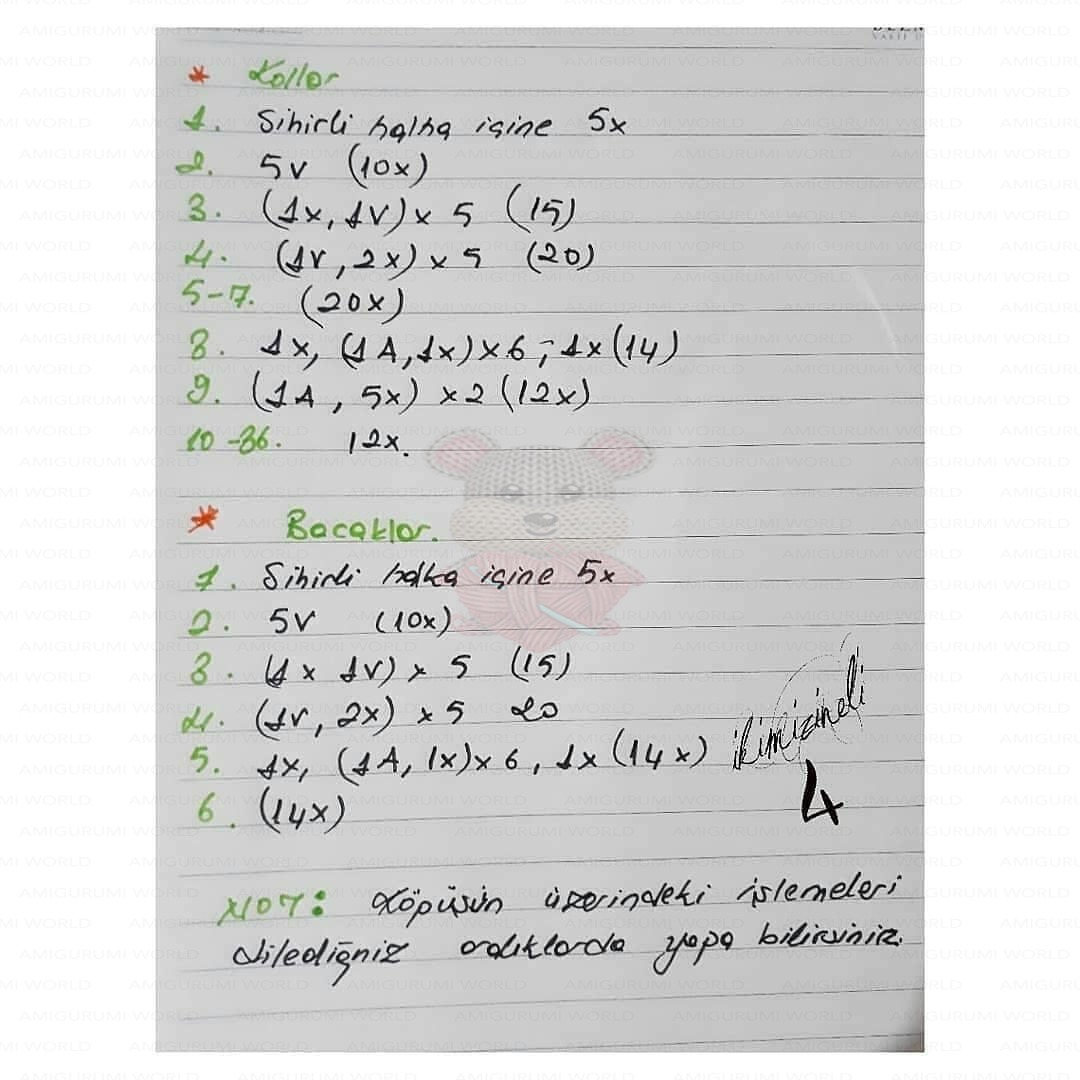 * Kollar
1. Sihirli halka içine 5x
2. 5V (10x)
3. (1x, 1V) x 5 (15)
4. (1V, 2x) x 5 (20)
5-7. (20x)
8. 1x, (1A, 1x) x 6, 1x (14)
9. (1A, 5x) x 2 (12x)
10-36. 12x.
* Bacaklar.
1. Sihirli halka içine 5x
2. 5V (10x)
3. (1x 1V) x 5 (15)
4. (1V, 2x) x 5 20
5. 1x, (1A, 1x) x 6, 1x (14x)
6. (14x)
4
NOT: Köpüşün üzerindeki işlemeleri
dilediğniz aralıklarda yapa bilirsiniz.
AMIGURUMI WORLD